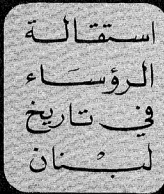 استقالة
الرؤساء
في تاريخ
لبنان